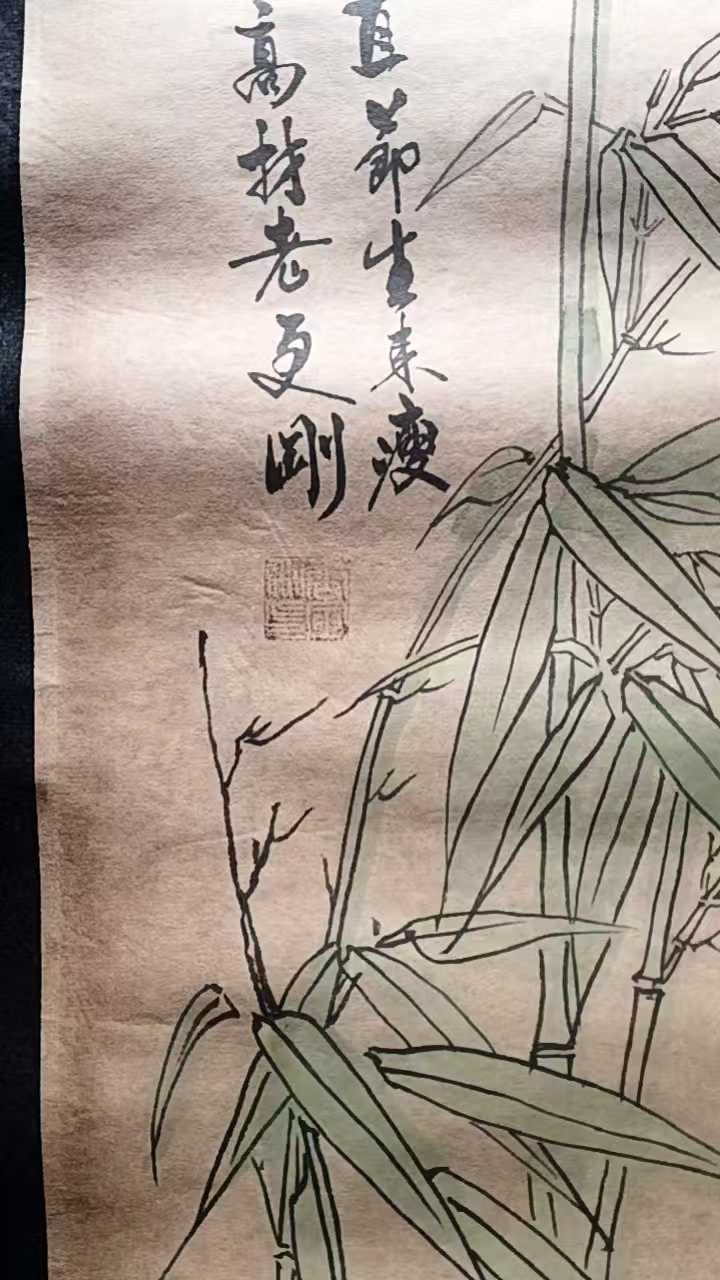 直節生来瘦
高材老更剛